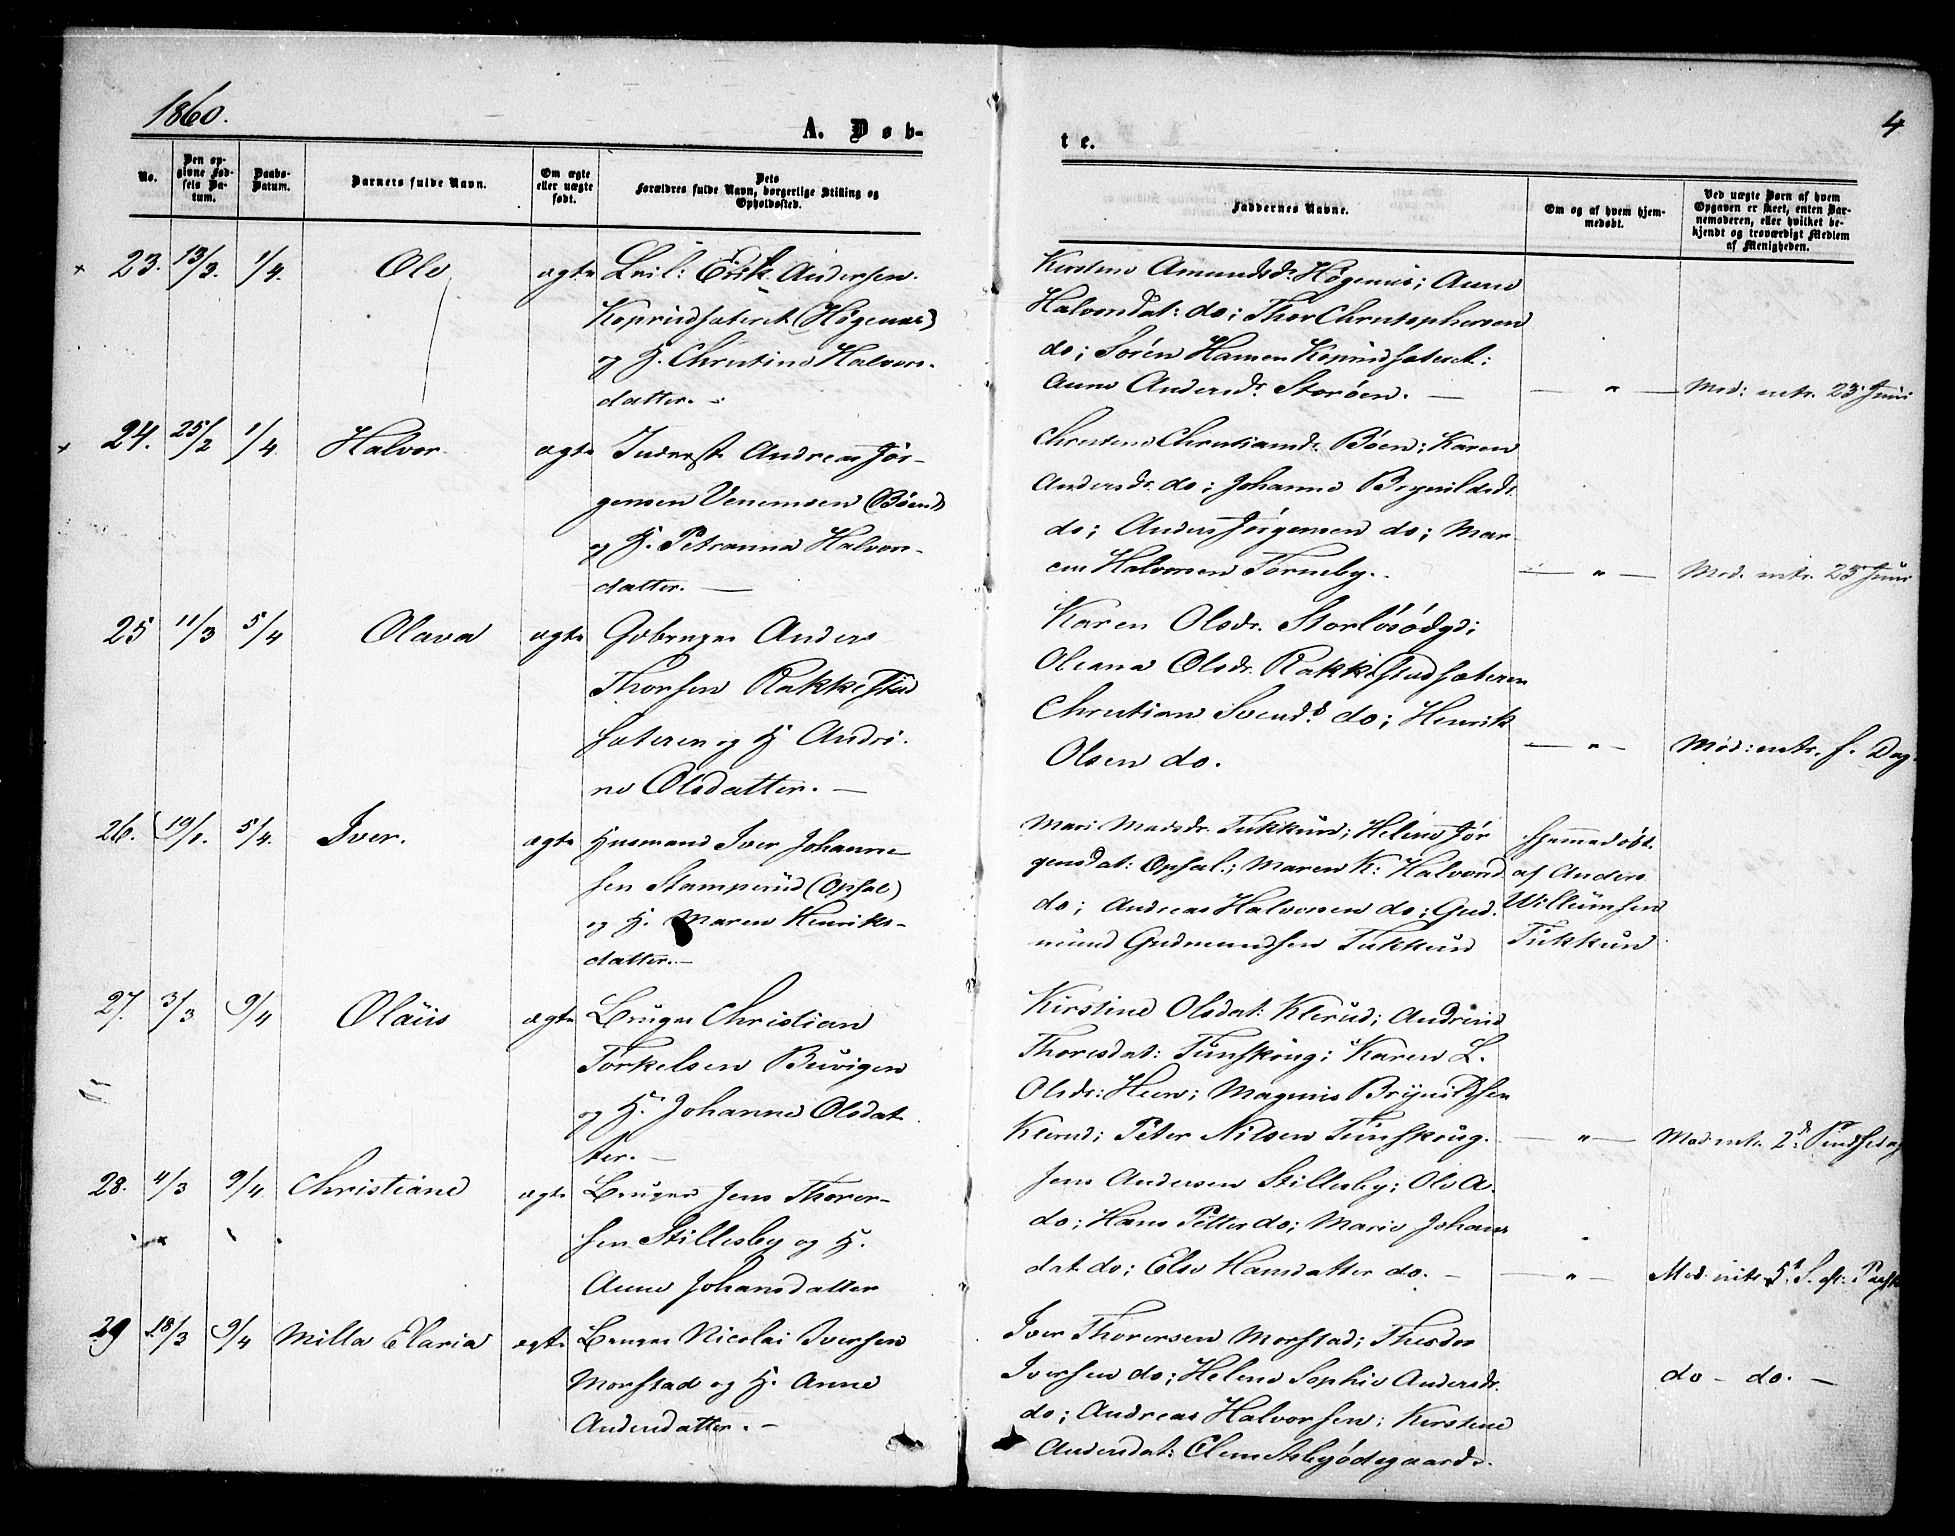 1860.
4
A. Døb-
te.
No.
Den op-
givne Fød-
sels Da-
tum.
Daabs-
Datum.
Barnets fulde Navn.
Om ægte
eller uægte
født.
Dets
Forældres fulde Navn, borgerlige Stilling og
Opholdssted.
Faddernes Navne.
Om og af hvem hjem-
medøbt.
Ved uægte Børn af hvem
Opgaven er skeet, enten Bar-
nemoderen, eller hvilket be-
kjendt og troværdigt Medlem
af Menigheden.
23. 13/3. 1/4. Ole ægte Leil: Erik Andersen
Koprudsæteret (Høgenæs)
og H. Christine Halvors-
datter. -
Kirstine Amundsdr. Høgenæs; Anne
Halvorsdat: do; Thor Christophersen
do; Søren Hansen Koprudsæteret:
Anne Andersdr. Storøen. -
— " — Mod: intr. 23 Juni
24. 25/2 1/4. Halvor ægte Inderst Andreas Jør-
gensen Venemoen (Bøen)
og H. Petranna Halvors-
datter. —
Christine Christiansdr. Bøen; Karen
Andersdr. do; Johanne Brynildsdr.
do; Anders Jørgensen do; Mar-
cus Halvorsen Torneby.
— " — Mod. intr. 23 Juni
25 11/3 5/4 Olava ægte Gbruger Anders
Thorsen Rakkestad
sæteren og H Andri-
ne Olsdatter. —
Karen Olsdr. Storløsødgd;
Oleana Olsdr. Rakkestadsæteren
Christian Svends. do; Henrik
Olsen do.
— " — Mod: intr. s. Dag.
26. 19/1. 5/4. Iver. ægte Husmand Iver Johanne-
sen Stamperud (Opsal)
og H. Maren Henriks-
datter. —
Mari Madsdr. Tukkun; Helene Jør
gensdat: Opsal; Maren K: Halvorsd
do; Andreas Halvorsen do; Gud-
mund Gudmundsen Tukkun
Hjemmedøbt
af Anders
Willumsen
Tukkun
27. 3/3 9/4 Olaus ægte Bruger Christian
Torkelsen Buvigen
og H. Johanne Olsdat
ter. —
Kirstine Olsdat: Klerud; Andrine
Thoresdat: Tunskoug; Karen L.
Olsdr: Heen; Magnus Brynildsen
Klerud; Peter Nilsen Tunskoug.
— " — Mod intr. 2d. Pindsedag
28. 4/3 9/4 Christiane ægte Bruger Jens Thorer-
sen Stillesby og H.
Anne Johansdatter
Jens Andersen Stillesby; Ole A.
do; Hans Petter do; Marie Johans
dat. do; Else Hansdatter do. -
— " — Mod. intr. 5t. S. ef: Paaske
29 18/3 9/4 Milla Elaria ægte Bruger Nicolai Iversen
Morstad og H. Anne
Andersdatter. —
Iver Thorersen Morstad; Theodor
Iversen do; Helene Sophie Andersdr.
do; Andreas Halvorsen; Kirstine
Andersdat: Clemetsbyødegaard.
do - do. —